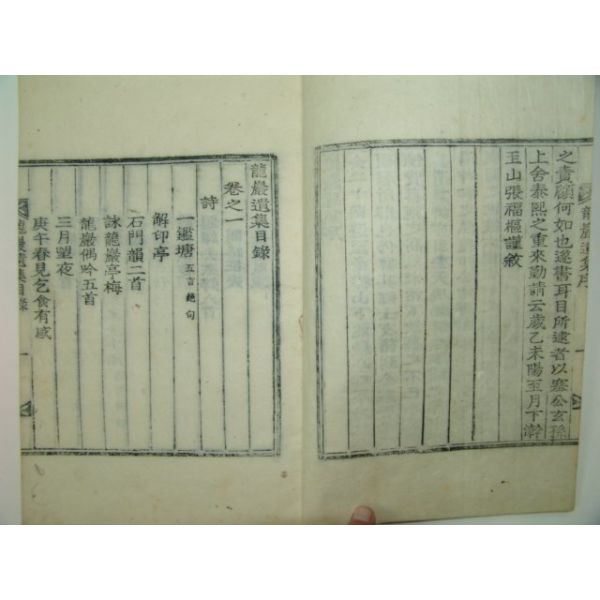 龍巖遺集序
之責顧何如也遂書耳目所逮者以塞公玄孫
上舍泰熙之重來勤請云歲乙未陽至月下澣
玉山張福樞謹敘
龍巖遺集目錄
卷之一
詩
一鑑塘 五言絶句
解印亭
石門韻二首
詠龍巖亭梅
龍巖偶吟五首
三月望夜
庚午春見乞食有感
龍巖遺集目錄
一